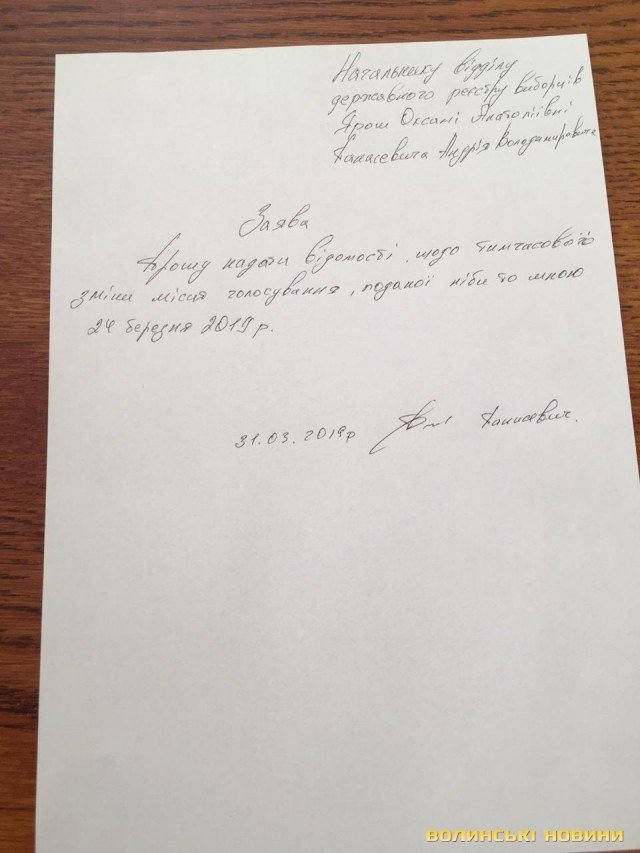 Начальнику відділу
державного реєстру виборців
Ярош Оксані Анатоліївні
Панасевича Андрія Володимировича
Заява
Прошу надати відомості, щодо тимчасової
зміни місця голосування, поданої ніби то мною
24 березня 2019 р.
31.03.2019р Панасевич.
ВОЛИНСЬКІ НОВИНИ